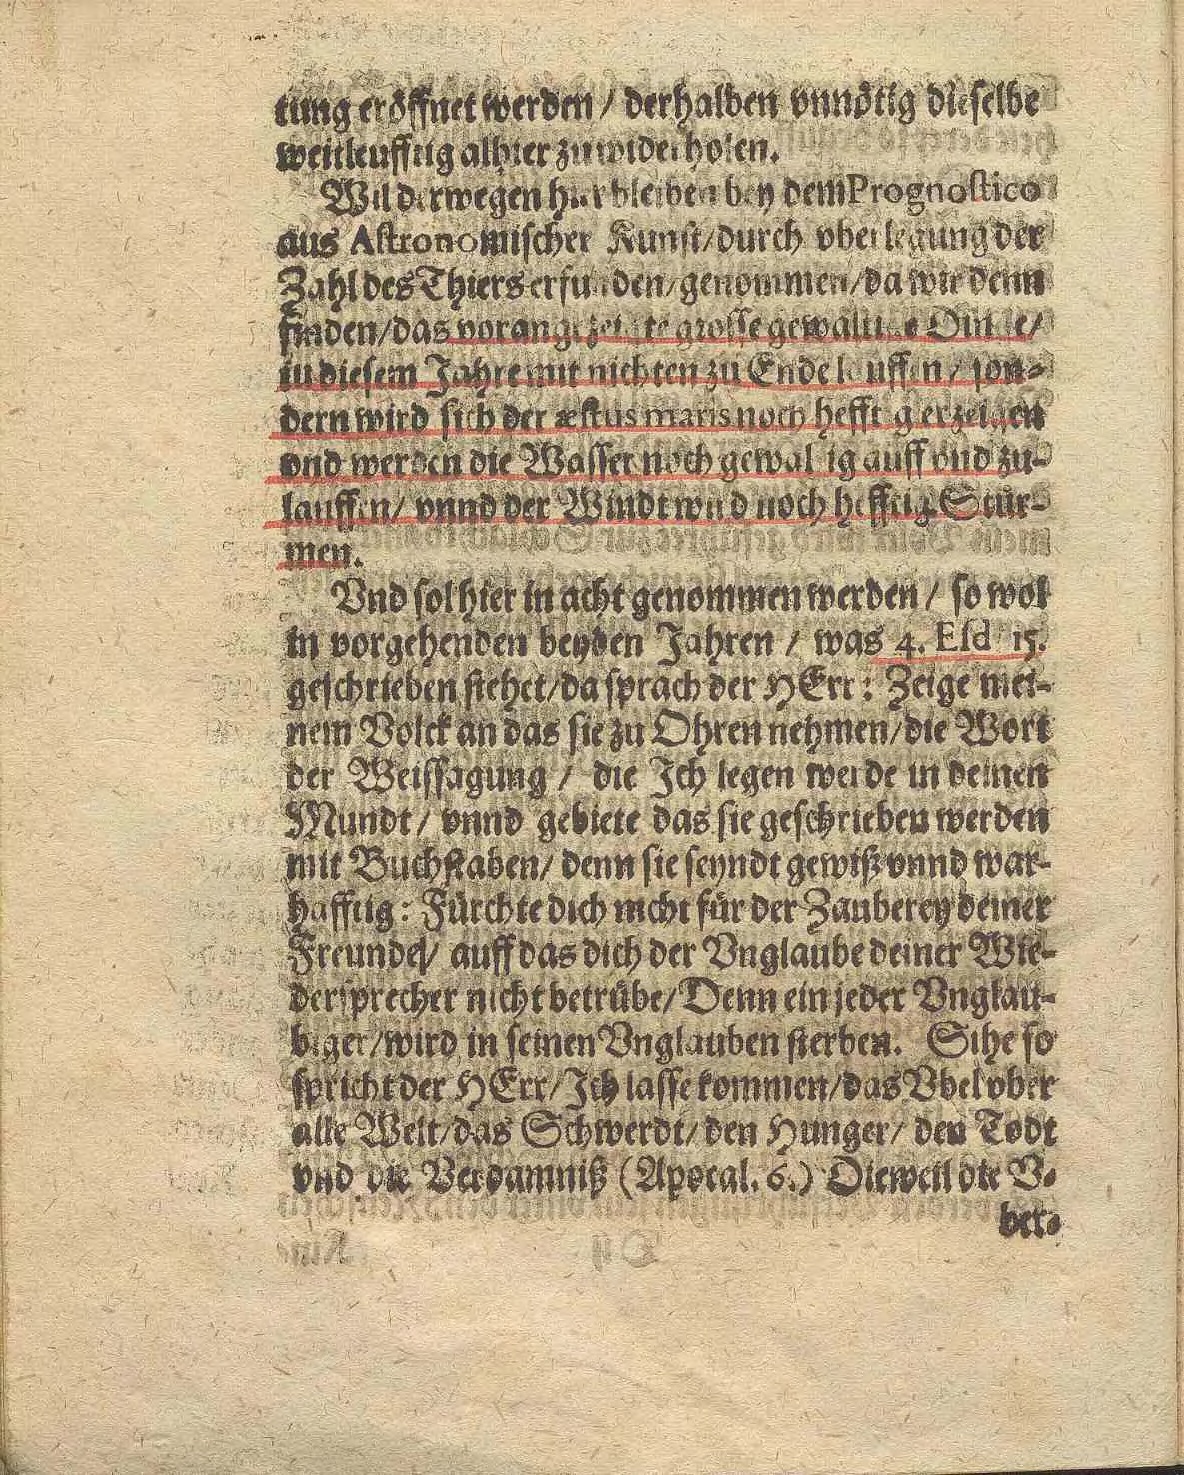 tung eröffnet werden / derhalben vnnötig dieselbe
weitleufftig alhier zu widerholen.
Wil derwegen hier bleiben bey dem Prognostico
aus Astronomischer Kunst / durch vberlegung der
Zahl des Thiers erfunden / genommen / da wir denn
finden / das vorangezeigte grosse gewaltige Dinge /
in diesem Jahre mit nichten zu Ende lauffen / son-
dern wird sich der æstus maris noch hefftig erzeigen
vnd werden die Wasser noch gewaltig auff vnd zu-
lauffen / vnnd der Windt wird noch hefftig Stür-
men.
Vnd sol hier in acht genommen werden / so wol
in vorgehenden beyden Jahren / was 4. Esd 15.
geschrieben stehet / da sprach der HErr: Zeige mei-
nem Volck an das sie zu Ohren nehmen / die Wort
der Weissagung / die Ich legen werde in deinen
Mundt / vnnd gebiete das sie geschrieben werden
mit Buchstaben / denn sie seyndt gewiß vnnd war-
hafftig: Fürchte dich nicht für der Zauberey deiner
Freunde / auff das dich der Vnglaube deiner Wie-
dersprecher nicht betrübe / Denn ein jeder Vnglau-
biger / wird in seinen Vnglauben sterben. Sihe so
spricht der HErr / Ich lasse kommen / das Vbel vber
alle Welt / das Schwerdt / den Hunger / den Todt
vnd die Verdamniß (Apocal. 6.) Dieweil die V-
ber-